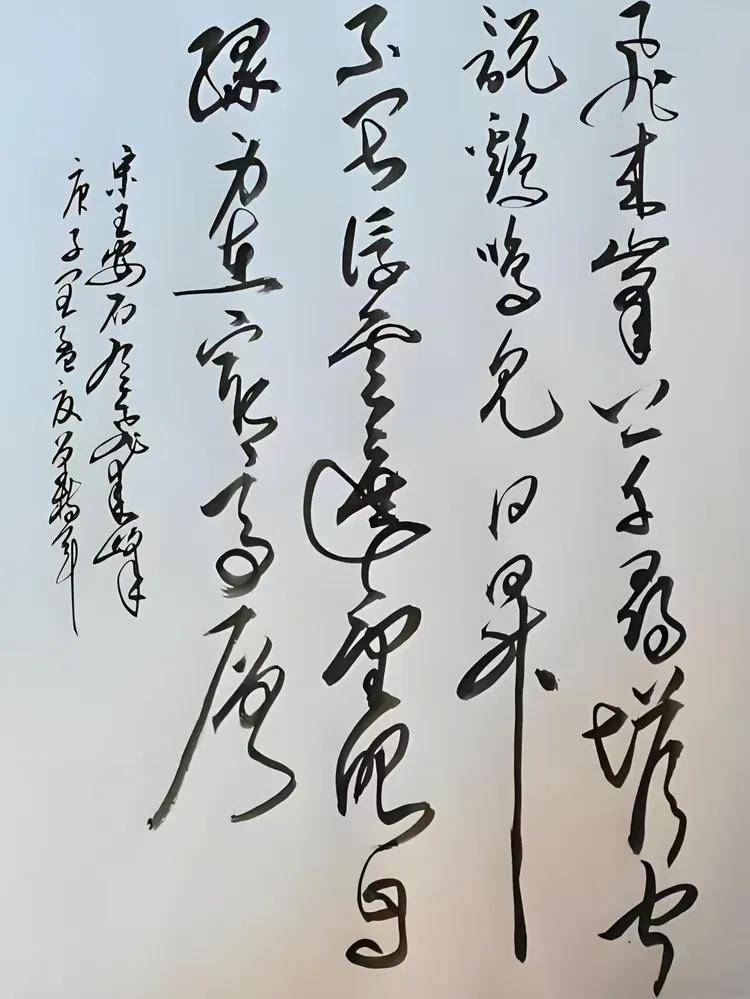 飛來峯上千尋塔聞
說鷄鳴見日昇
不畏浮雲遮望眼自
緣身在最高層
宋王安石登飛來峯
庚子